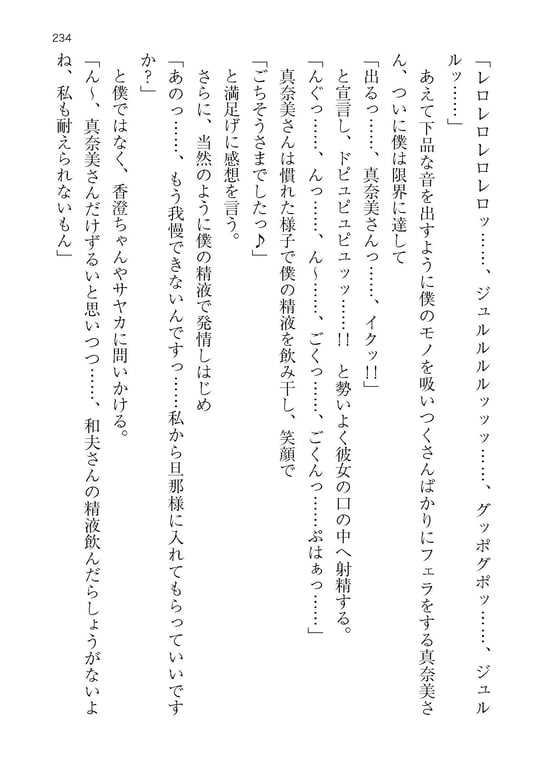 234
「レロレロレロレロッ……、ジュルルルルッッッ……、グッポグポッ……、ジュル
ルッ……」
あえて下品な音を出すように僕のモノを吸いつくさんばかりにフェラをする真奈美さ
ん、ついに僕は限界に達して
「出るっ……、真奈美さんっ……、イクッ!!」
と宣言し、ドピュピュピュッッ……!! と勢いよく彼女の口の中へ射精する。
「んぐっ……、んっ……、ん〜……、ごくっ……、ごくんっ……ぷはぁっ……」
真奈美さんは慣れた様子で僕の精液を飲み干し、笑顔で
「ごちそうさまでしたっ♪」
と満足げに感想を言う。
さらに、当然のように僕の精液で発情しはじめ
「あのっ……、もう我慢できないんですっ……私から旦那様に入れてもらっていいです
か?」
と僕ではなく、香澄ちゃんやサヤカに問いかける。
「ん〜、真奈美さんだけずるいと思いつつ……、和夫さんの精液飲んだらしょうがないよ
ね、私も耐えられないもん」